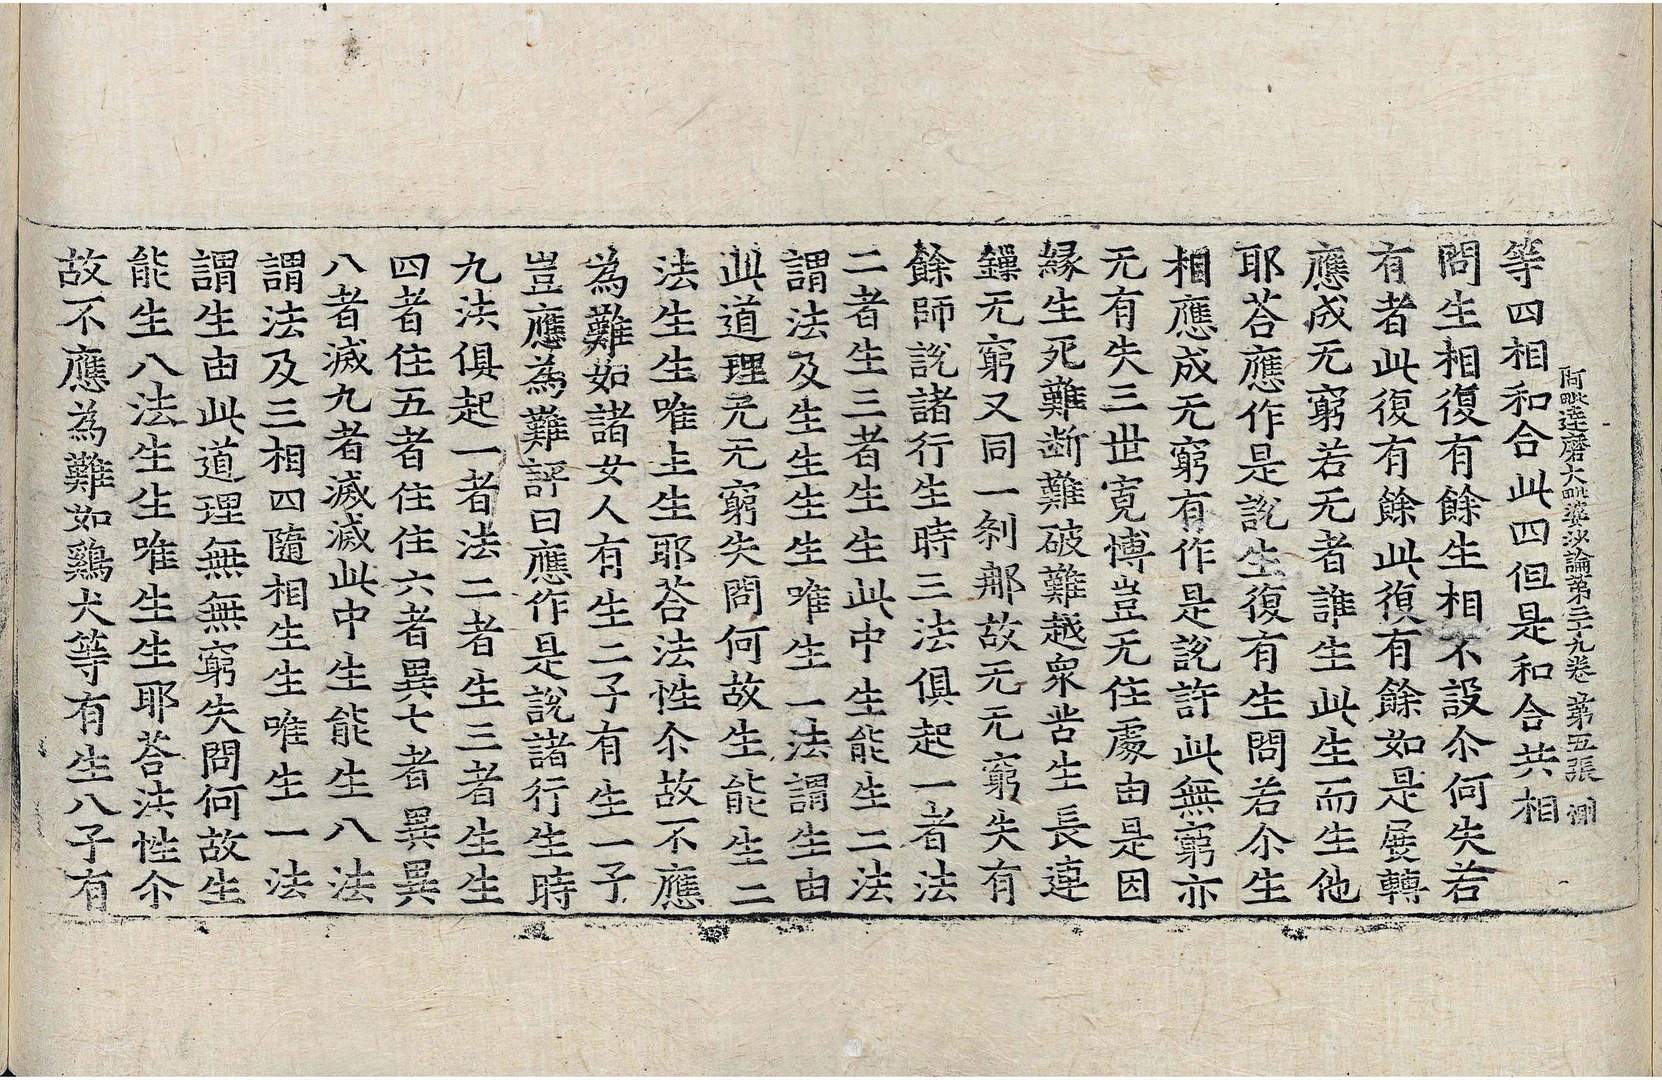 阿毗達磨大毗婆沙論第三十九卷 第五張 惻
等四相和合此四但是和合共相
問生相復有餘生相不設尒何失若
有者此復有餘此復有餘如是展轉
應成无窮若无者誰生此生而生他
耶荅應作是說生復有生問若尒生
相應成无窮有作是說許此無窮亦
无有失三世寬博豈无住處由是因
緣生死難斷難破難越衆苦生長連
鏁无窮又同一剎那故无无窮失有
餘師說諸行生時三法俱起一者法
二者生三者生生此中生能生二法
謂法及生生生生唯生一法謂生由
此道理无无窮失問何故生能生二
法生生唯生生耶荅法性尒故不應
為難如諸女人有生二子有生一子
豈應為難評曰應作是說諸行生時
九法俱起一者法二者生三者生生
四者住五者住住六者異七者異異
八者滅九者滅滅此中生能生八法
謂法及三相四隨相生生唯生一法
謂生由此道理無無窮失問何故生
能生八法生生唯生生耶荅法性尒
故不應為難如鷄犬等有生八子有